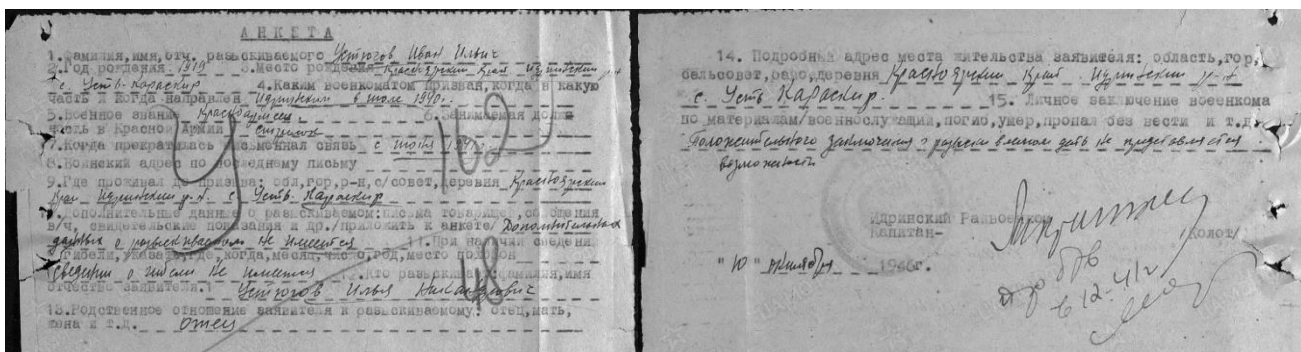 АНКЕТА
1. Фамилия, имя, отч. разыскиваемого Устюгов Иван Ильич
2. Год рождения 1919 3. Место рождения Красноярский край Идринский р-н
с. Усть-Караскир 4. Каким военкоматом призван, когда в какую
часть и когда направлен Идринским в июле 1940 г.
5. Военное звание Красноармеец 6. Занимаемая долж
ность в Красной Армии стрелок
7. Когда прекратилась письменная связь с июня 1941 г.
8. Воинский адрес по последнему письму
9. Где проживал до призыва: обл, гор, р-н, с/совет, деревня Красноярский
край Идринский р-н. с Усть-Караскир
дополнительные данные о разыскиваемом: письма товарищей, сообщения
в/ч, свидетельские показания и др./приложить к анкете/ Дополнительных
данных о разыскиваемом не имеется 11. При наличии сведений
гибели, указать, где, когда, месяц, число, год, место похорон
сведений о гибели не имеется 12. Кто разыскивает: фамилия, имя
отчество заявителя. Устюгов Илья
13. Родственное отношение заявителя к разыскиваемому: отец, мать,
жена и т.д. отец
У
162
48
14. Подробный адрес места жительства заявителя: область, гор,
сельсовет, район, деревня Красноярский край Идринский р-н
с. Усть Караскир. 15. Личное заключение военкома
по материалам/военнослужащий, погиб, умер, пропал без вести и т.д.
Положительного заключения о разыскиваемом дать не представляется
возможности
Идринский Райвоенком
Капитан- /Колот/
"10" октября 1946г.